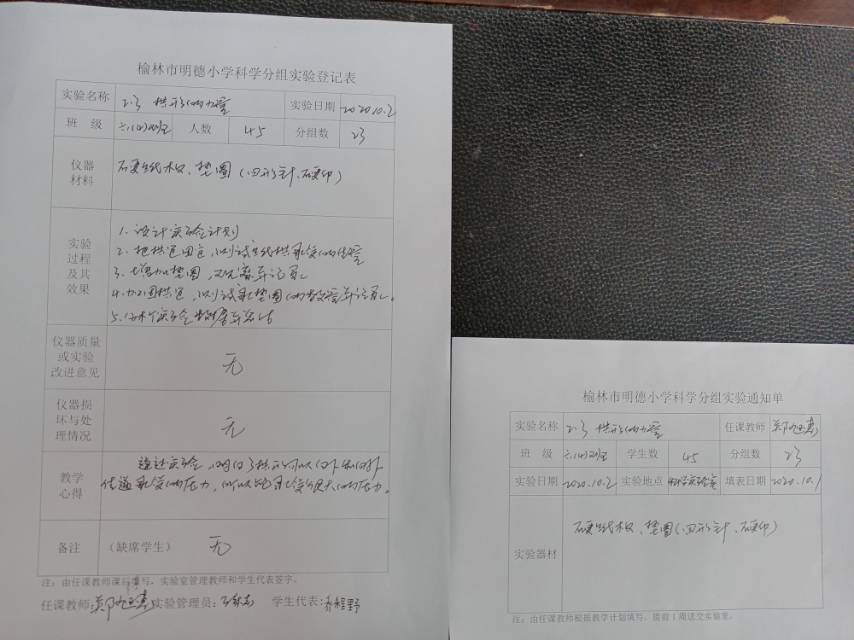 榆林市明德小学科学分组实验登记表
实验名称 2.3 拱形的力量 实验日期 2020.10.2
班 级 六.(2)班 人数 45 分组数 23
仪器材料
硬纸板、垫圈(回形针、硬币)
实验过程及其效果
1.设计实验计划
2.把拱足固定,测试纸拱承受的重量
3.增加垫圈,观察并记录
4.加固拱足,测试承垫圈的数量并记录。
仪器质量或实验改进意见
无
仪器损坏与处理情况
无
教学心得
通过实验,明白了拱形可以向下和向外
传递承受的压力,所以能承受很大的压力。
备注 (缺席学生) 无
注:由任课教师课前填写,实验室管理教师和学生代表签字。
任课教师: 实验管理员: 学生代表:
榆林市明德小学科学分组实验通知单
实验名称 2.3 拱形的力量 任课教师
班 级 六.(2)班 学生数 45 分组数 23
实验日期 2020.10.2 实验地点 科学实验室 填表日期 2020.10.1
实验器材
硬纸板、垫圈(回形针、硬币)
注:由任课教师根据教学计划填写,提前1周送交实验室。